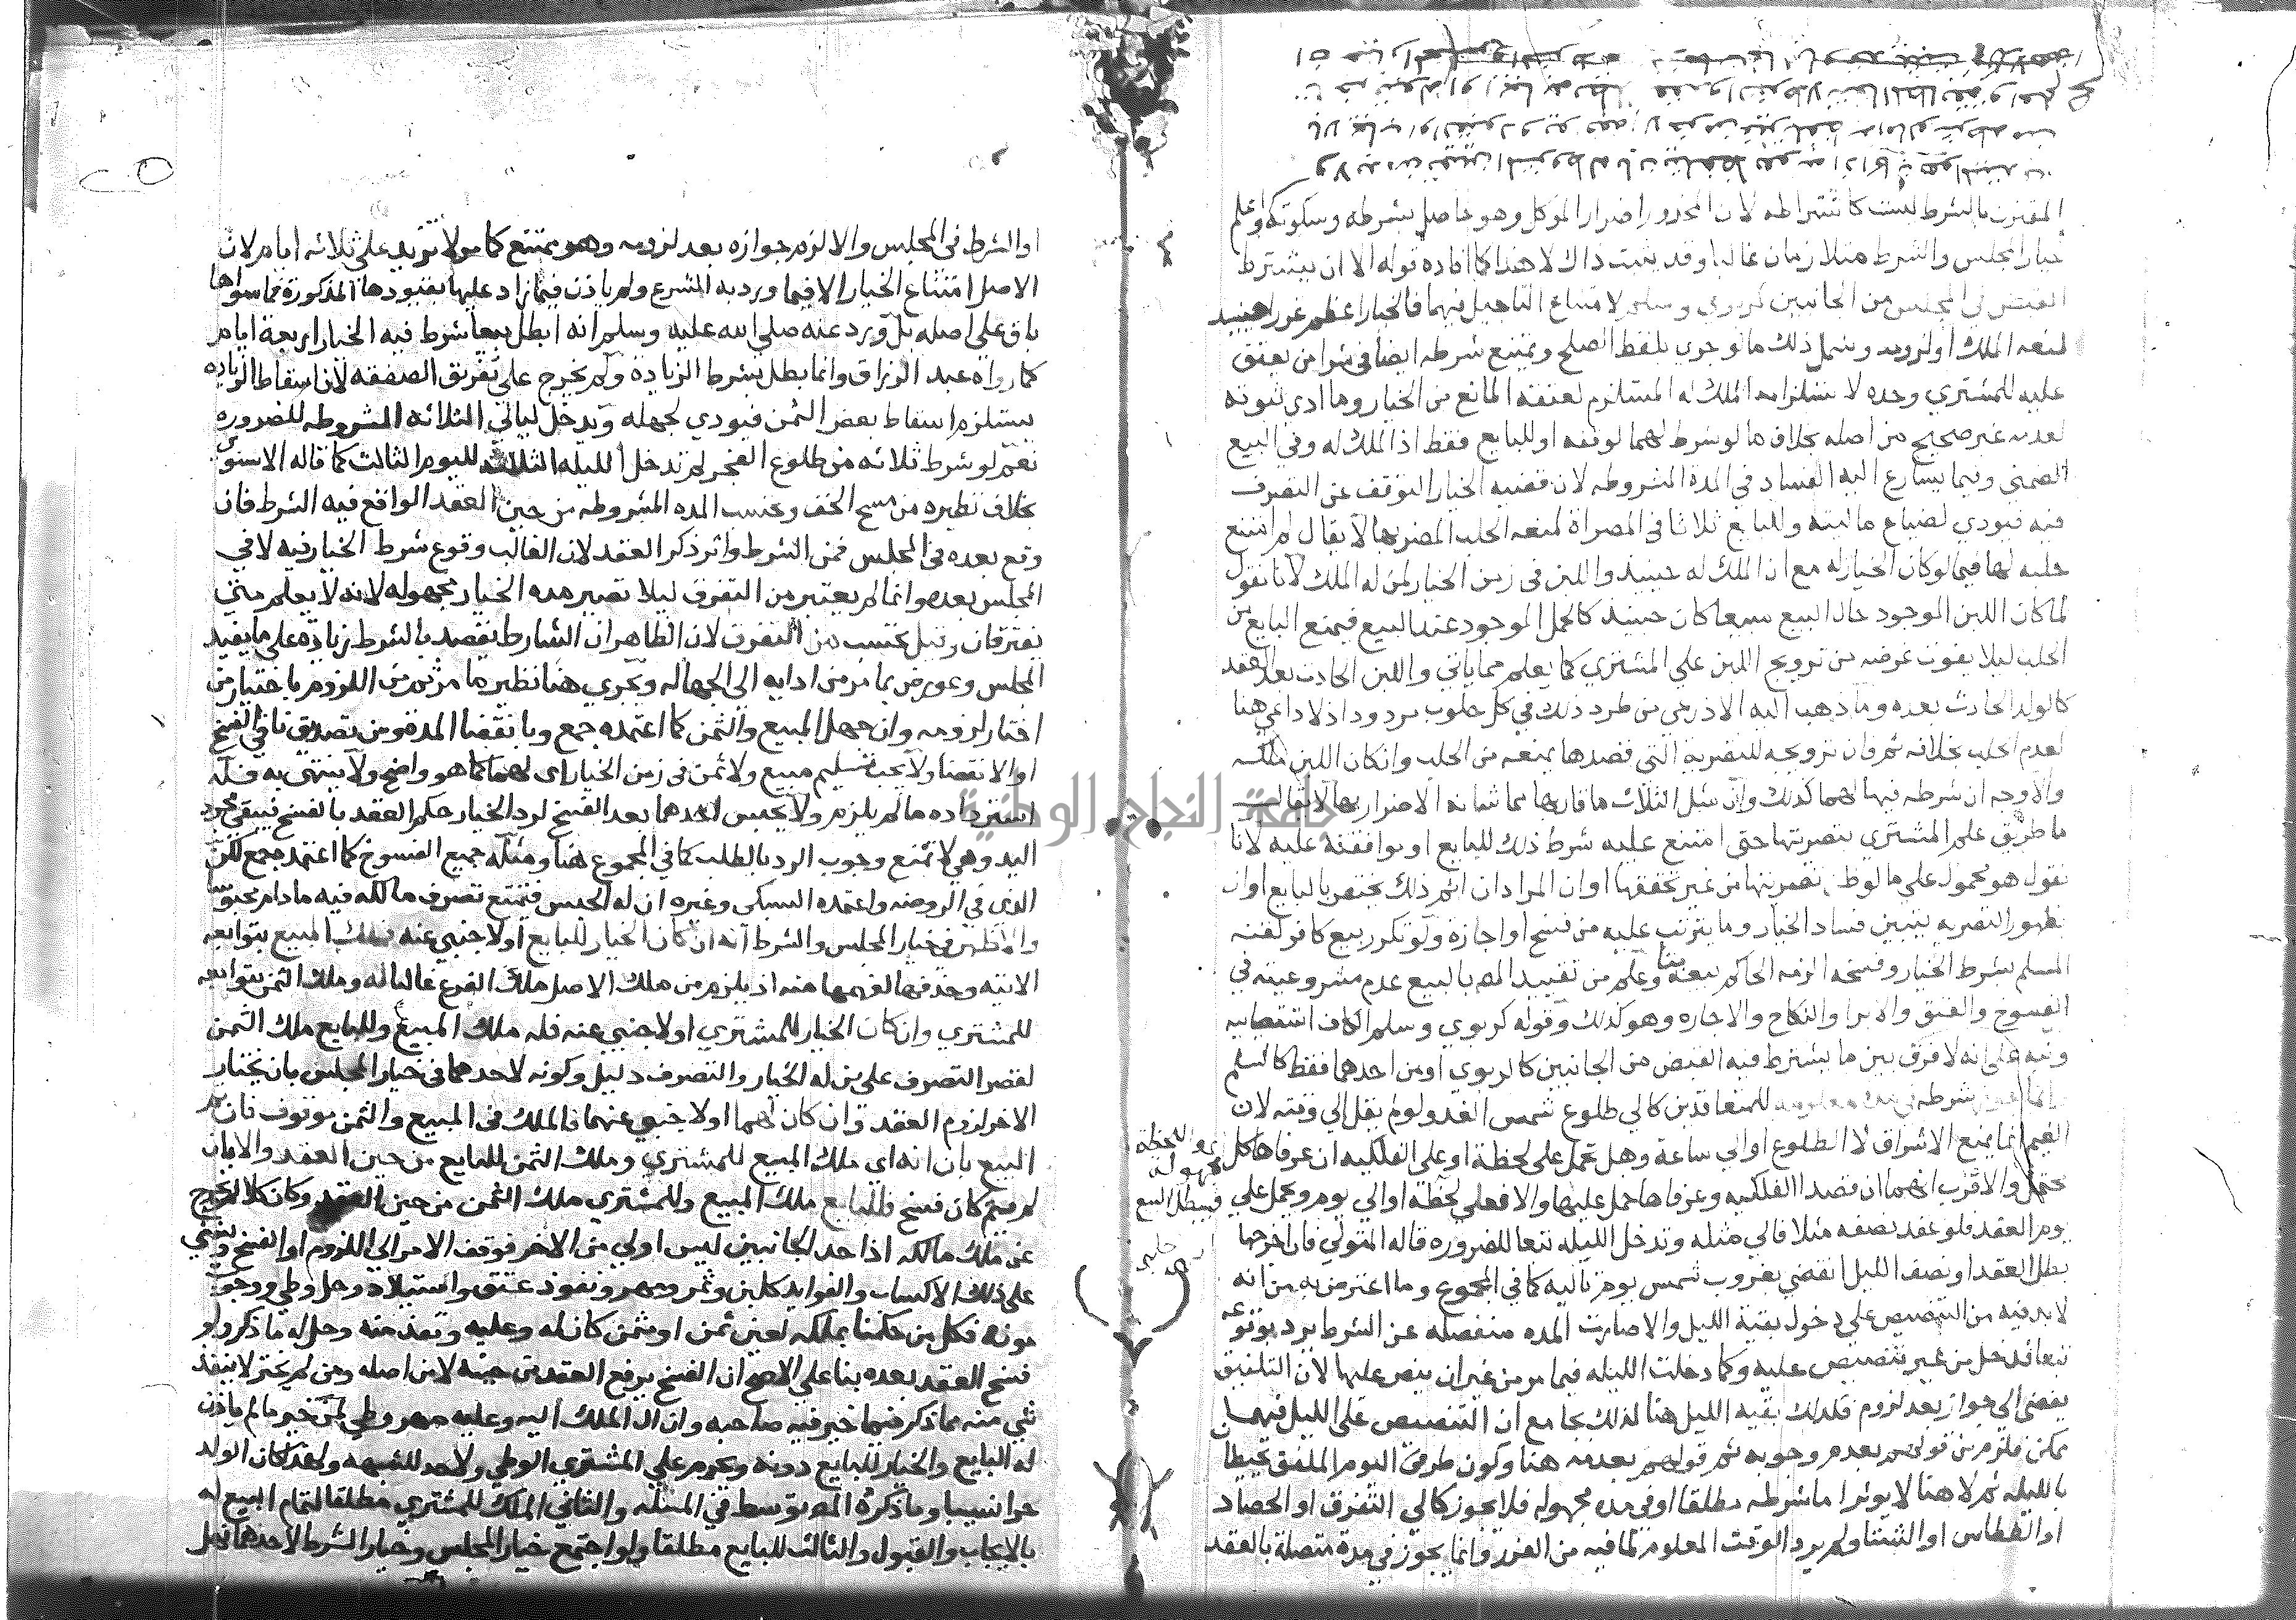 المقترن بالشرط ليست كاشتراطه لان المحذور اضرار الموكل وهو حاصل بشرطه وسكوته واعلم
خيار المجلس والشرط متلازمان غالبا وقد يثبت ذاك لا هذا كما افاده قوله الا ان يشترط
القبض في المجلس من الجانبين كربوي وسلم لامتناع التاجيل فيهما فالخيار اعظم غررا حينيذ
لمنعه الملك او لزومه وشمل ذلك ما لو جري بلفظ الصلح ويمتنع شرطه ايضا في شرا من يعتق
عليه للمشتري وحده لاستلزامه الملك له المستلزم لعتقه المانع من الخيار وما ادى ثبوته
لعدمه غير صحيح من اصله بخلاف ما لو شرط لهما لوقفه او للبايع فقط اذ الملك له وفي البيع
الضمني وفيما يسارع اليه الفساد في المدة المشروطه لان قضيه الخيار التوقف عن التصرف
فيه فيودي لضياع ماليته وللبايع ثلاثا في المصراة لمنعه الحلب المضر بها لا يقال لم امتنع
حلبه لها فيما لو كان الخيار له مع ان الملك له حينيذ واللبن في زمن الخيار لمن له الملك لانا نقول
لما كان اللبن الموجود حال البيع مبيعا كان حينيذ كالحمل الموجود عند البيع فيمنع البايع من
الحلب ليلا يفوت غرضه من ترويج اللبن علي المشتري كما يعلم مما ياتي واللبن الحادث بعد العقد
كالولد الحادث بعده وما ذهب اليه الاذرعي من طرد ذلك في كل حلوب مردود اذ لا داعي هنا
لعدم الحلب بخلافه ثم فان ترويجه للتصريه التي قصدها يمنعه من الحلب وان كان اللبن ملكه
والاوجه ان شرطه فيها لهما كذلك وان مثل الثلاث ما قاربها مما شانه الاضرار بها لا يقال
ما طريق علم المشتري بتصريتها حتى امتنع عليه شرط ذلك للبايع او موافقته عليه لانا
نقول هو محمول على ما لو ظن تصريتها من غير تحققها او ان المراد ان اثم ذلك يختص بالبايع او ان
بظهور التصريه يتبين فساد الخيار وما يترتب عليه من فسخ او اجازة ولو تكرر بيع كافر لقنه
المسلم بشرط الخيار وفسخه الزمه الحاكم بيعه بتا وعلم من تقييد المص بالبيع عدم مشروعيته في
الفسوخ والعتق والابرا والنكاح والاجاره وهو كذلك وقوله كربوي وسلم الكاف استقصاييه
ونبه على انه لا فرق بين ما يشترط فيه القبض من الجانبين كالربوي او من احدهما فقط كالسلم
وانما يجوز شرطه في مدة معلومه للمتعاقدين كالي طلوع شمس الغد ولو لم يقل الي وقته لان
الغيم انما يمنع الاشراق لا الطلوع او الي ساعة وهل تحمل على لحظة او على الفلكيه ان عرفاها كل
محتمل والاقرب انهما ان قصدا الفلكيه وعرفاها حمل عليها والا فعلي لحظة او الي يوم ويحمل علي
يوم العقد فلو عقد نصفه مثلا فالي مثله وتدخل الليله تبعا للضروره قاله المتولي فان اخرجها
بطل العقد او نصف الليل انقضي بغروب شمس يوم تاليه كما في المجموع وما اعترض به من انه
لا بد فيه من التنصيص على دخول بقية الليل والا صارت المده منفصله عن الشرط يرد بوقوعه
تبعا فدخل من غير تنصيص عليه وكما دخلت الليله فيما مر من غير ان ينص عليها لان التلفيق
يفضي الي جواز بعد لزوم فكذلك بقيه الليل هنا لذلك بجامع ان التنصيص على الليل فيهما
ممكن فلزم من قولهم بعدم وجوبه ثم قولهم بعدمه هنا وكون طرفي اليوم الملفق يحيطان
بالليله ثم لا هنا لا يوثر اما شرطه مطلقا او في مدة مجهوله فلا يجوز كالي التفرق او الحصاد
او العطاس او الشتا ولم يرد الوقت المعلوم لما فيه من الغرر وانما يجوز في مدة متصلة بالعقد
او الشرط في المجلس والا لزم جوازه بعد لزومه وهو ممتنع كما مر لا تزيد على ثلاثه ايام لان
الاصل امتناع الخيار الا فيما ورد به الشرع ولم ياذن فيما زاد عليها بقيودها المذكورة فما سواها
باق على اصله بل ورد عنه صلى الله عليه وسلم انه ابطل بيعا شرط فيه الخيار اربعة ايام
كما رواه عبد الرزاق وانما بطل بشرط الزيادة ولم يخرج على تفريق الصفقه لان اسقاط الزياده
يستلزم اسقاط بعض الثمن فيودي لجهله وتدخل ليالي الثلاثه المشروطه للضروره
نعم لو شرط ثلاثه من طلوع الفجر لم تدخل الليله الثلاث لليوم الثالث كما قاله الاسنوي
بخلاف نظيره من مسح الخف وتحسب المده المشروطه من حين العقد الواقع فيه الشرط فان
وقع بعده في المجلس فمن الشرط واثر ذكر العقد لان الغالب وقوع شرط الخيار فيه لا في
المجلس بعده وانما لم يعتبر من التفرق ليلا تصير مده الخيار مجهوله لانه لا يعلم متى
يفترقان وقيل تحتسب من التفرق لان الظاهر ان الشارط يقصد بالشرط زياده على ما يفيد
المجلس وعورض بما مر من ادايه الى الجهاله ويجري هنا نظير ما مر ثم من اللزوم باختيار من
اختار لزومه وان جهل المبيع والثمن كما اعتمده جمع وبانقضا المده ومن تصديق نافي الفسخ
او الانقضا ولا يجب تسليم مبيع ولا ثمن في زمن الخيار اى لهما كما هو واضح ولا ينتهي به فله
استرداده ما لم يلزم ولا يحبس احدهما بعد الفسخ لرد الخيار حكم العقد بالفسخ فيبقى مجرد
اليد وهي لا تمنع وجوب الرد بالطلب كما في المجموع هنا ومثله جميع الفسوخ كما اعتمده جمع لكن
الذي في الروضه واعتمده السبكي وغيره ان له الحبس فيمتنع تصرف مالكه فيه ما دام محبوسا
والاظهر في خيار المجلس والشرط انه ان كان الخيار للبايع او لاجنبي عنه فملك المبيع بتوابعه
الاتيه وحذفها لفهمها منه اذ يلزم من ملك الاصل ملك الفرع غالبا له وملك الثمن بتوابعه
للمشتري وان كان الخيار للمشتري او لاجنبي عنه فله ملك المبيع وللبايع ملك الثمن
لقصر التصرف على من له الخيار والتصرف دليل وكونه لاحدهما في خيار المجلس بان يختار
الاخر لزوم العقد وان كان لهما او لاجنبي عنهما فالملك في المبيع والثمن موقوف فان تم
البيع بان انه اي ملك المبيع للمشتري وملك الثمن للبايع من حين العقد والا بان
لم يتم كان فسخ فللبايع ملك المبيع وللمشتري ملك الثمن من حين العقد وكان كلا لم يخرج
عن ملك مالكه اذ احد الجانبين ليس اولي من الاخر فوقف الامر الي اللزوم او الفسخ وينبني
على ذلك الاكساب والفوايد كلبن وثمر ومهر ونفوذ عتق واستيلاد وحل وطي ووجوب
مونه فكل من حكمنا بملكه لعين ثمن او مثمن كان له وعليه ونفذ منه وحل له ما ذكر ولو
فسخ العقد بعده بنا علي الاصح ان الفسخ يرفع العقد من حينه لا من اصله ومن لم يخير لا ينفذ
شي منه مما ذكر فيما خير فيه صاحبه وان ال الملك اليه وعليه مهر وطي لمن خير ما لم ياذن
له البايع والخيار للبايع دونه ويحرم علي المشتري الوطي ولا حد للشبهه ولهذا كان الولد
حرا نسيبا وما ذكره المص توسط في المسله والثاني الملك للمشتري مطلقا لتمام البيع له
بالايجاب والقبول والثالث للبايع مطلقا ولو اجتمع خيار المجلس وخيار الشرط لاحدهما فهل
جامعة النجاح الوطنية